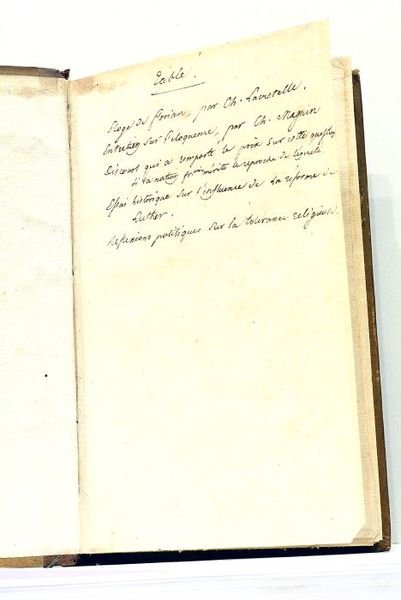 Table.
Eloge de florian, par Ch. Lacretelle.
Entretien sur l'eloquence, par Ch. Magnin
Discours qui a remporté le prix sur cette question
si la nation françoise mérite le reproche de légereté
Essai historique sur l'influence de la réforme de
Luther.
Réflexions politiques sur la tolerance religieuse.